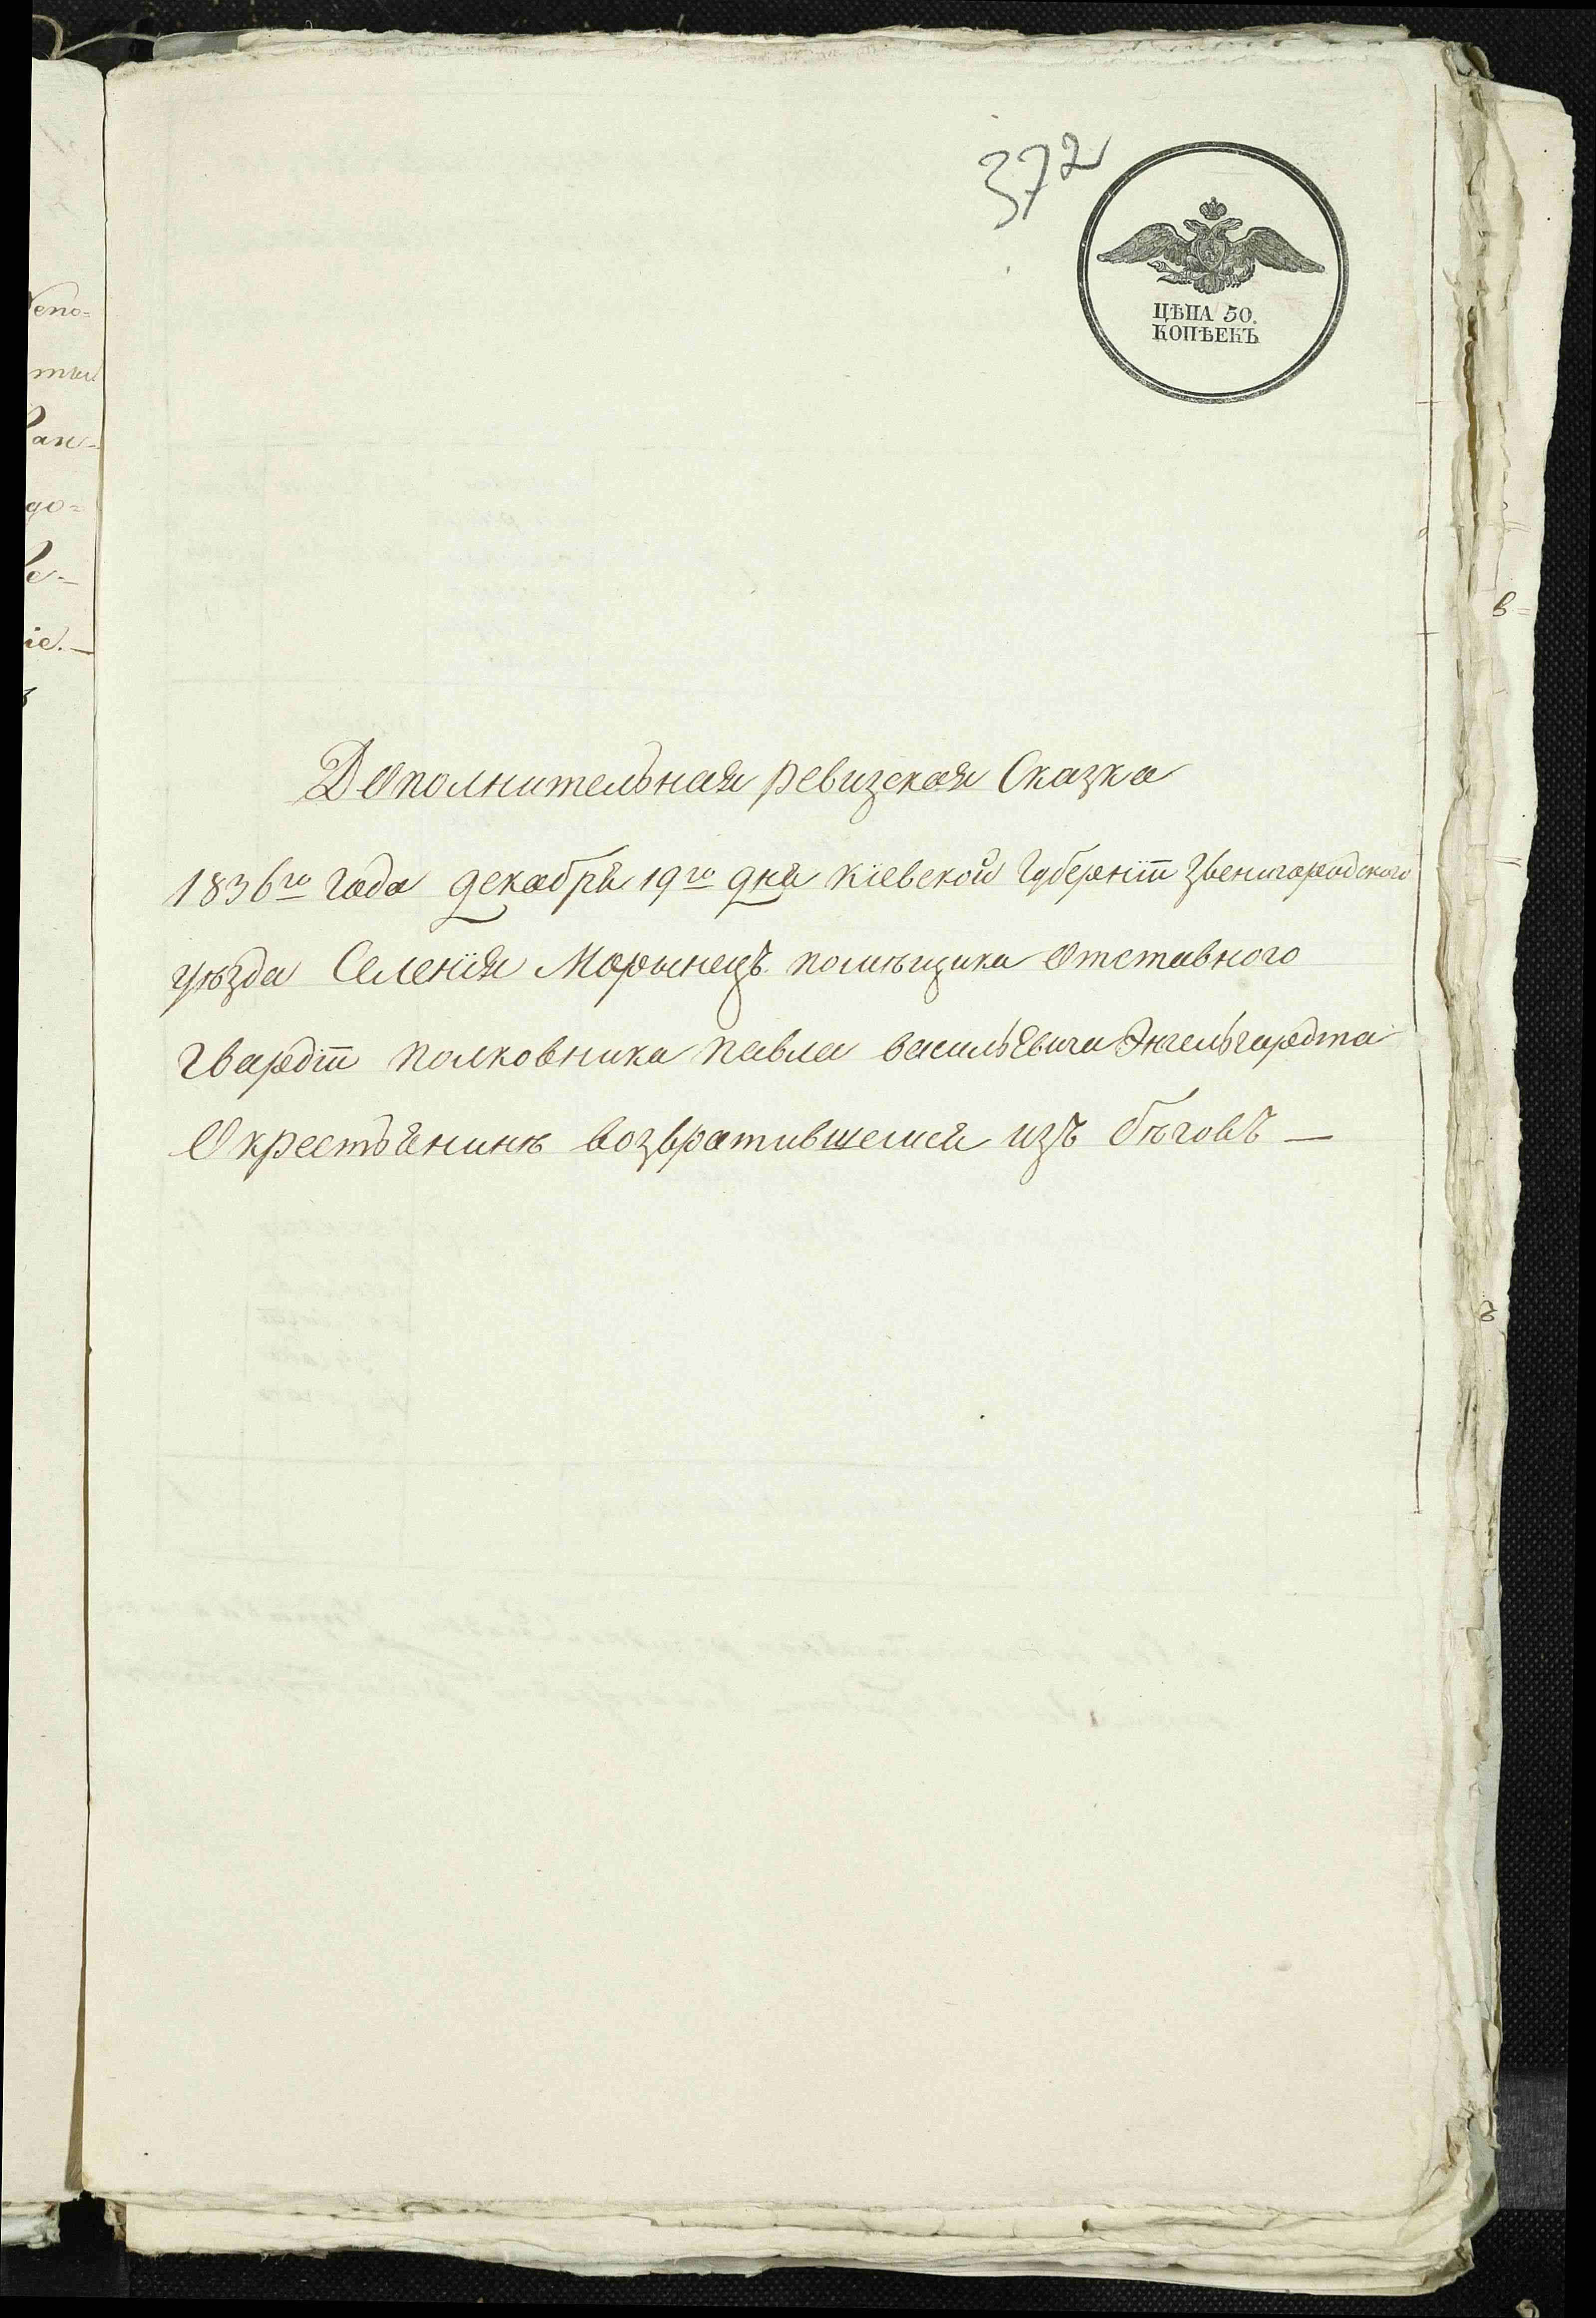 372
ЦѢНА 50.
КОПѢЕКЪ
Дополнительная ревизская Сказка
1836го года декабря 19го дня кіевской губерніи Звенигородского
уѣзда Селенія Морынецъ помѣщика Отставного
гвардіи полковника павла васильевича Энгельгардта
О крестьянинѣ возвратившемся изъ бѣговъ —